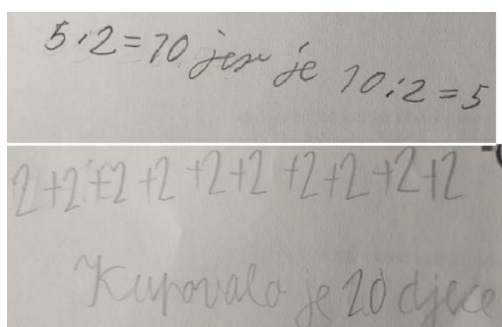 5·2=10 jer je 10:2=5
2+2+2+2+2+2+2+2+2+2
Kupovalo je 20 djece